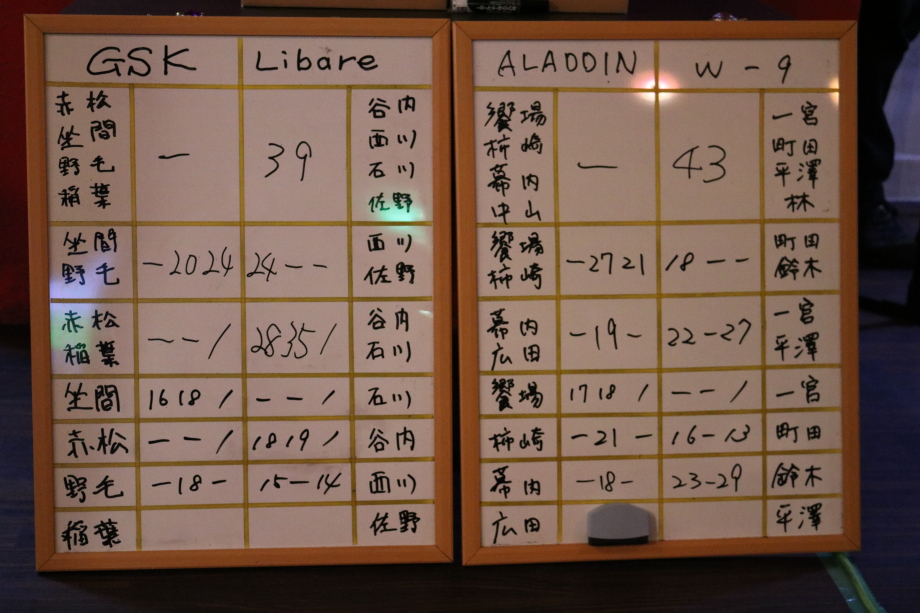 GSK Libare
赤松 谷内
坐間 西川
野毛 — 39 石川
稲葉 佐野
坐間 西川
野毛 -2024 24-- 佐野
赤松 谷内
稲葉 --/ 28351 石川
坐間 1618/ --/ 石川
赤松 --/ 1819/ 谷内
野毛 -18- 15-14 西川
稲葉 佐野
ALADDIN W-9
饗場 一宮
柿崎 町田
幕内 — 43 平澤
中山 林
饗場 町田
柿崎 -2721 18-- 鈴木
幕内 一宮
広田 -19- 22-27 平澤
饗場 1718/ --/ 一宮
柿崎 -21- 16-13 町田
幕内 -18- 23-29 鈴木
広田 平澤